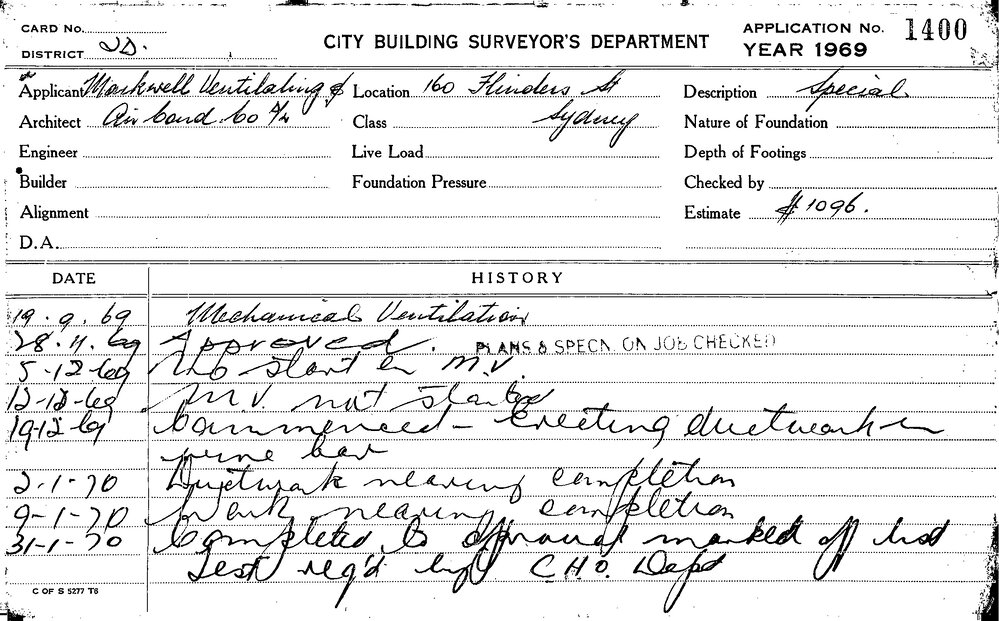 CARD No.
DISTRICT 2D.
CITY BUILDING SURVEYOR'S DEPARTMENT
APPLICATION No. 1400
YEAR 1969
Applicant Markwell Ventilating &
Location 160 Flinders St
Description Special
Architect Air Cond. Co P/L
Class Sydney
Nature of Foundation
Engineer
Live Load
Depth of Footings
Builder
Foundation Pressure
Checked by
Alignment
Estimate $1096.
D.A.
DATE HISTORY
19.9.69 Mechanical Ventilation
28.11.69 Approved. PLANS & SPECN. ON JOB CHECKED
5-12-69 No start on M.V.
12-12-69 M.V. not started
19-12-69 Commenced - Erecting ductwork in
wine bar
2-1-70 Ductwork nearing completion
9-1-70 Work nearing completion
31-1-70 Completed to approval marked off
Test req'd by C.H.O. Dept
C OF S 5277 T6